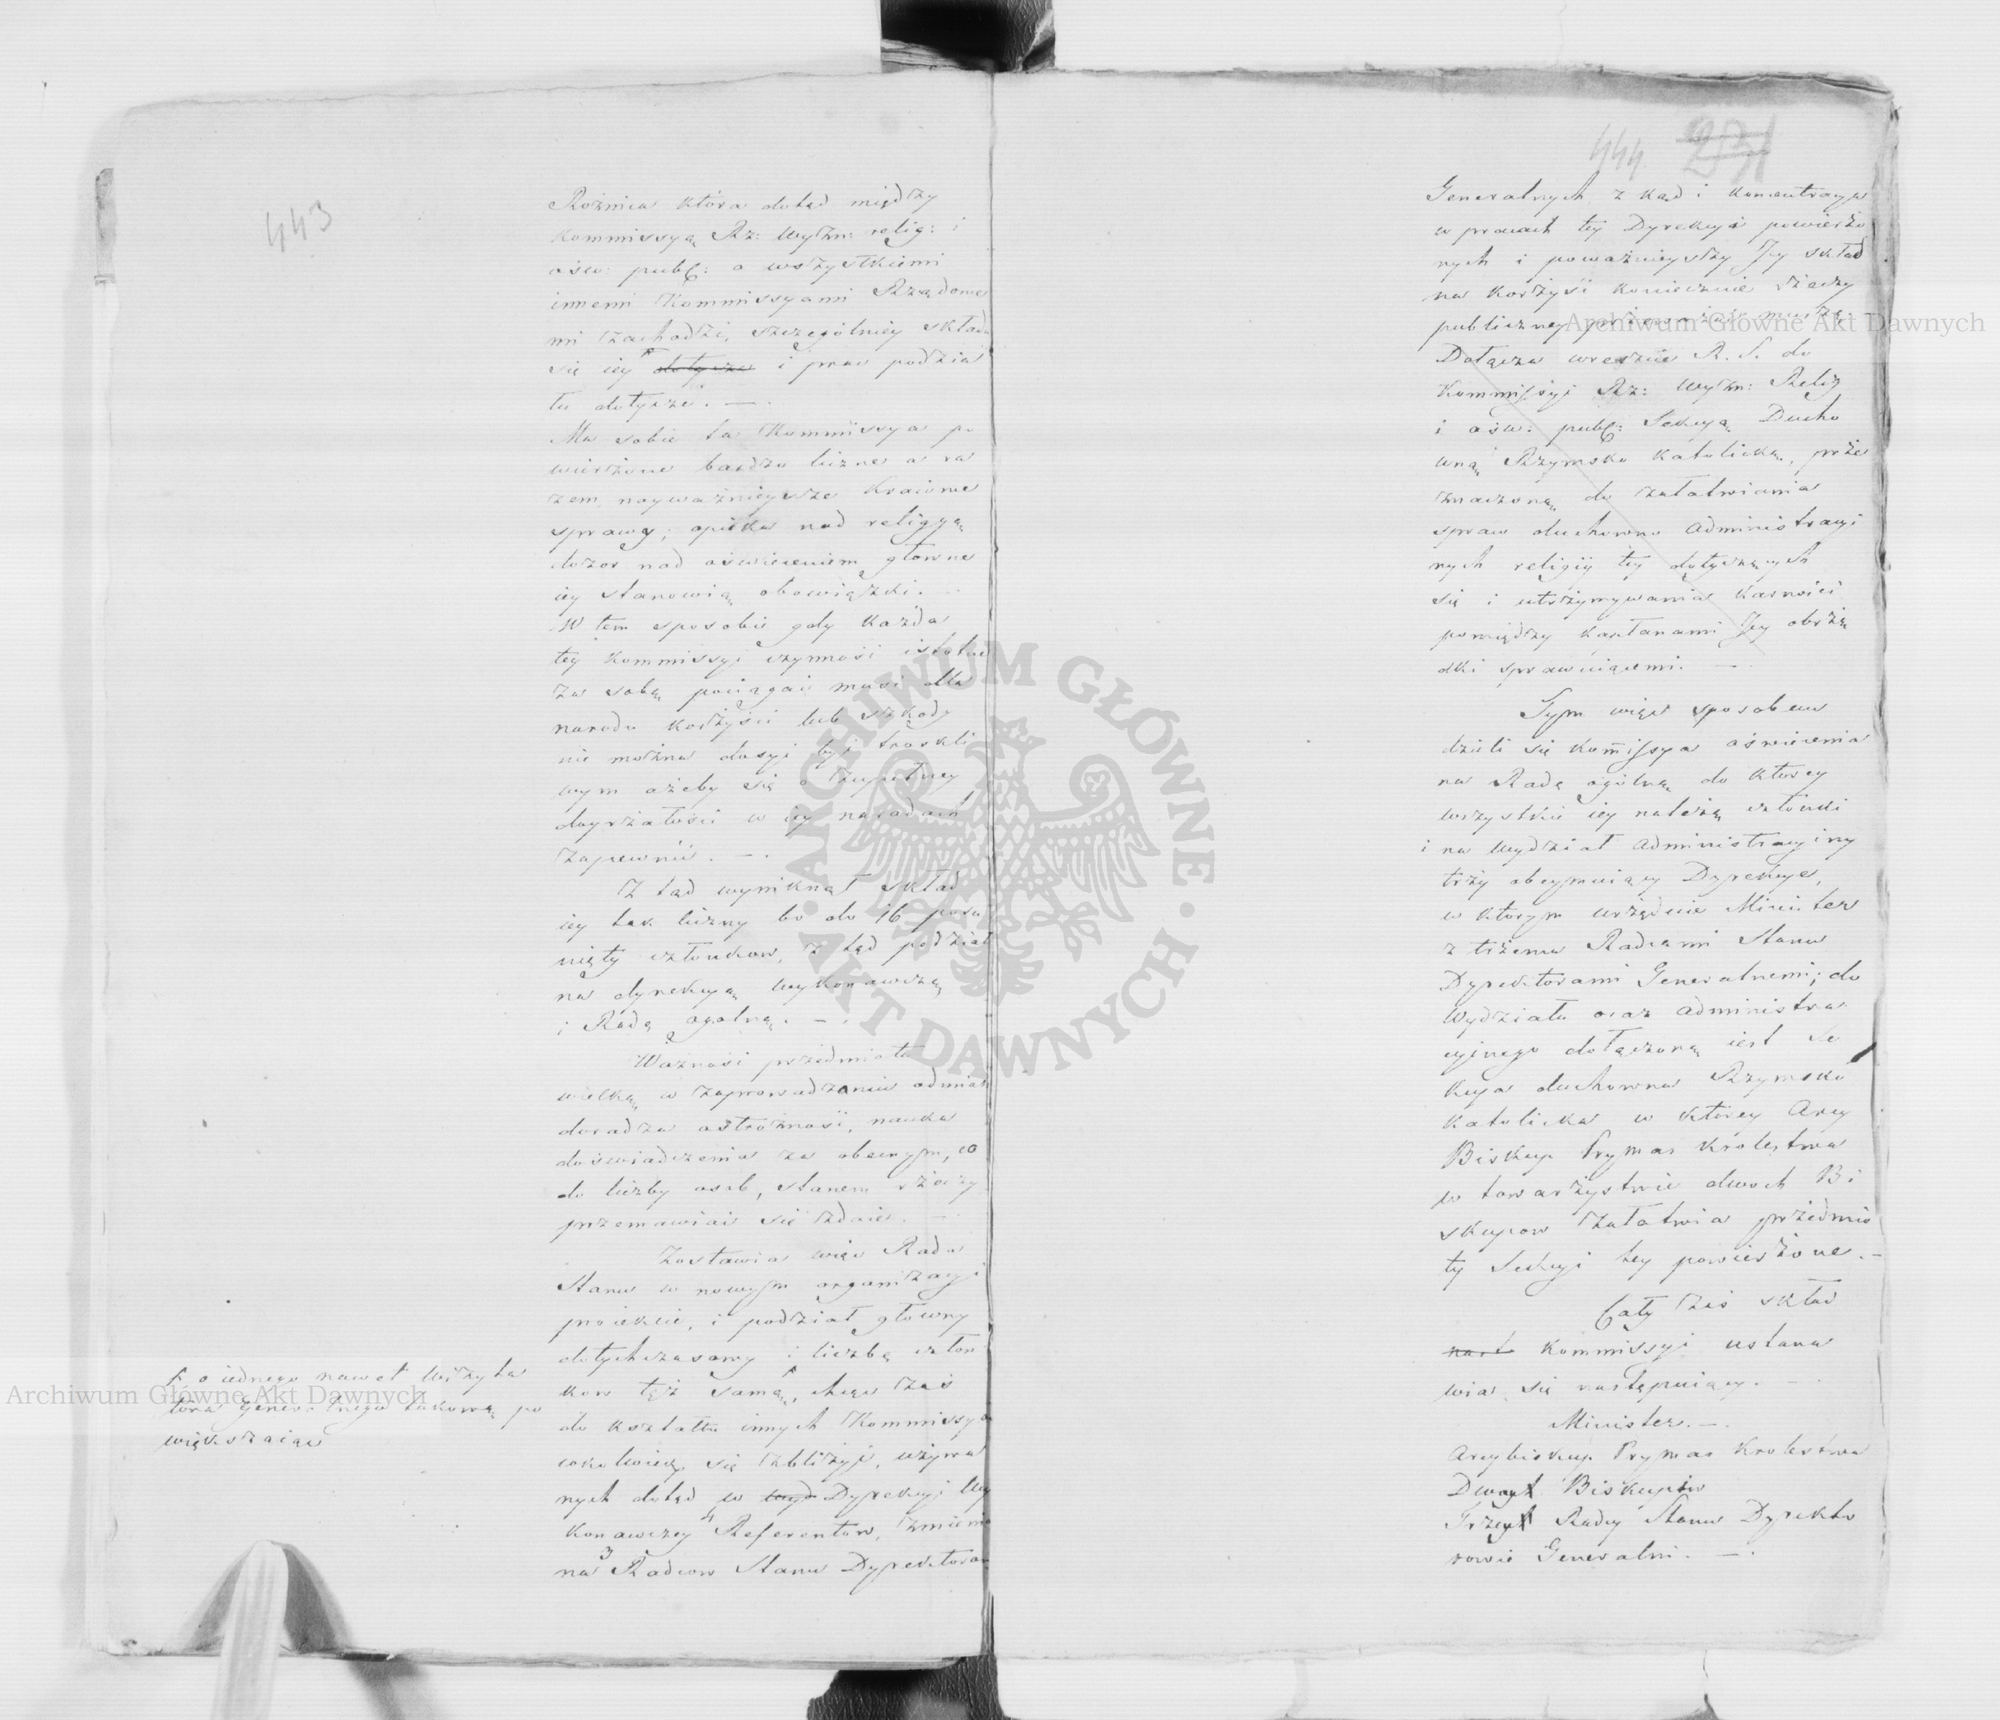 443
Rożnica która dotąd między
Kommissyą Rz: Wyzn: relig: i
ośw: publ: a wszystkiemi
innemi Kommissyami Rządowe
mi zachodzi, szczególniey składu
się iey dotycze i prac podzia
łu dotycze. —.
Ma sobie ta Kommissya po
wierzone bardzo liczne a ra
zem nayważnieysze Kraiowe
sprawy; opieka nad religyą,
dozor nad oświeceniem główne
iey stanowią obowiązki. —
W tem sposobie gdy każda
tey Kommissyi czynność istotne
za sobą pociągać musi dla
narodu korzyści lub szkody
nie można dosyć być troskli
wym ażeby się o zupełney
doyrzałości w iey naradach
zapewnić. —.
Z tąd wyniknął skład
iey tak liczny bo do 16 posu
nięty członkow, z tąd podział
na dyrekcyą wykonawczą,
i Radę ogolną. —.
Ważność przedmiotu
wielką w zaprowadzaniu odmian
doradza ostrożność, nauka
doświadczenia za obecnym, co
do liczby osob, stanem rzeczy
przemawiać się zdaie. —
Zostawia więc Rada
Stanu w nowym organizacyi
proiekcie, i podział główny
dotychczasowy i liczbę człon
kow też samą, chcąc zaś
do kształtu innych Kommissyi
cokolwiek się zbliżyć, używa
nych dotąd w wyd Dyrekcyi Wy
konawczey 4 Referentow, zmienia
na 3 Radcow Stanu Dyrektorow
o iednego nawet Wizyta
tora Generalnego takową po
większaiąc
444. 231
Generalnych z kąd i koncentracya
w pracach tey Dyrekcyi powierzo
nych i poważnieyszy Jey skład
na korzyść koniecznie rzeczy
publiczney przeważać muszą.
Dołącza wreszcie R. S. do
Kommissyi Rz: Wyzn: Relig
i ośw: publ: Sekcyą Ducho
wną Rzymsko Katolicką, prze
znaczoną do załatwiania
spraw duchowno administracyi
nych religii tey dotyczących
się i utrzymywania karności
pomiędzy kapłanami Jey obrzą
dki sprawuiącemi. —.
Tym więc sposobem
dzieli się Komissya oświecenia
na Radę ogólną do którey
wszystkie iey należą członki
i na Wydział administracyiny
trzy obeymuiący Dyrekcye,
w ktorym urzęduie Minister
z trzema Radcami Stanu
Dyrektorami Generalnemi; do
Wydziału oraz administra
cyinego dołączoną iest Se
kcya duchowna Rzymsko
Katolicka w którey Arcy
Biskup Prymas Królestwa
w towarzystwie dwoch Bi
skupow załatwia przedmio
ty Sekcyi tey powierzone. —
Cały zaś skład
nast Kommissyi ustana
wia się następuiący. —.
Minister. —.
Arcybiskup Prymas Krolestwa
Dwoch Biskupów
Trzech Radcy Stanu Dyrekto
rowie Generalni. —.
ARCHIWUM GŁÓWNE AKT DAWNYCH
Archiwum Główne Akt Dawnych
Archiwum Główne Akt Dawnych